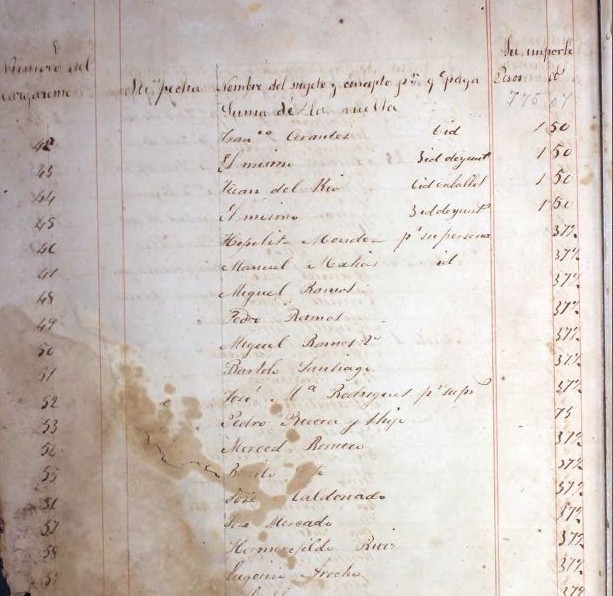 Su importe
Numero del
cargareme Nombre del sujeto y concepto pr. q. e paga Pesos ct
Suma de la vuelta 775 07
42 Franco Cervantes 6 id 1 50
43 El mismo 3 id de yunt 1 50
44 Juan del Rio 6 id caballer 1 50
45 El mismo 3 id de yunt 1 50
46 Hipolito Mendez pr su persona 37½
47 Manuel Matias id 37½
48 Miguel Ramos 37½
49 Pedro Ramos 37½
50 Miguel Ramos 2o 37½
51 Bartolo Santiago 37½
52 José Ma Rodriguez pr su pr 37½
53 Pedro Rivera y Hijo 75
54 Merced Romero 37½
55 Benito 37½
56 José Maldonado 37½
57 José Mercado 37½
58 Hermenejildo Ruiz 37½
59 Eugenio 37½
37½